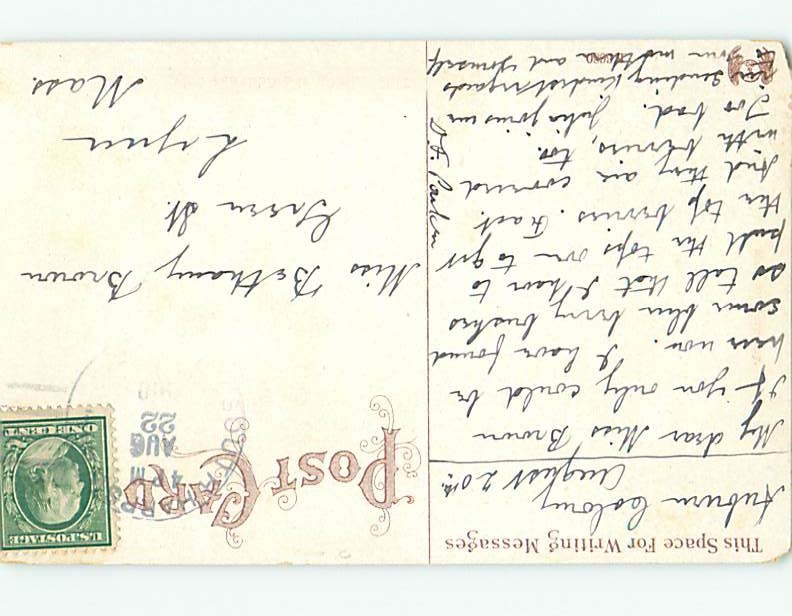 This Space For Writing Messages
Auburn Colony
August 20th
My dear Miss Brown
If you only could be
here now. I have found
some blue berry bushes
so tall that I have to
pull the tops over to get
the top berries. Fact.
And they are covered
with berries, too.
Too bad. Julia joins me
in sending kindest regards
to your mother and yourself
D. F. Parker
POST CARD
4 PM
AUG
22
U.S. POSTAGE
ONE CENT
Miss Bethany Brown
Green St.
Lynn
Mass.